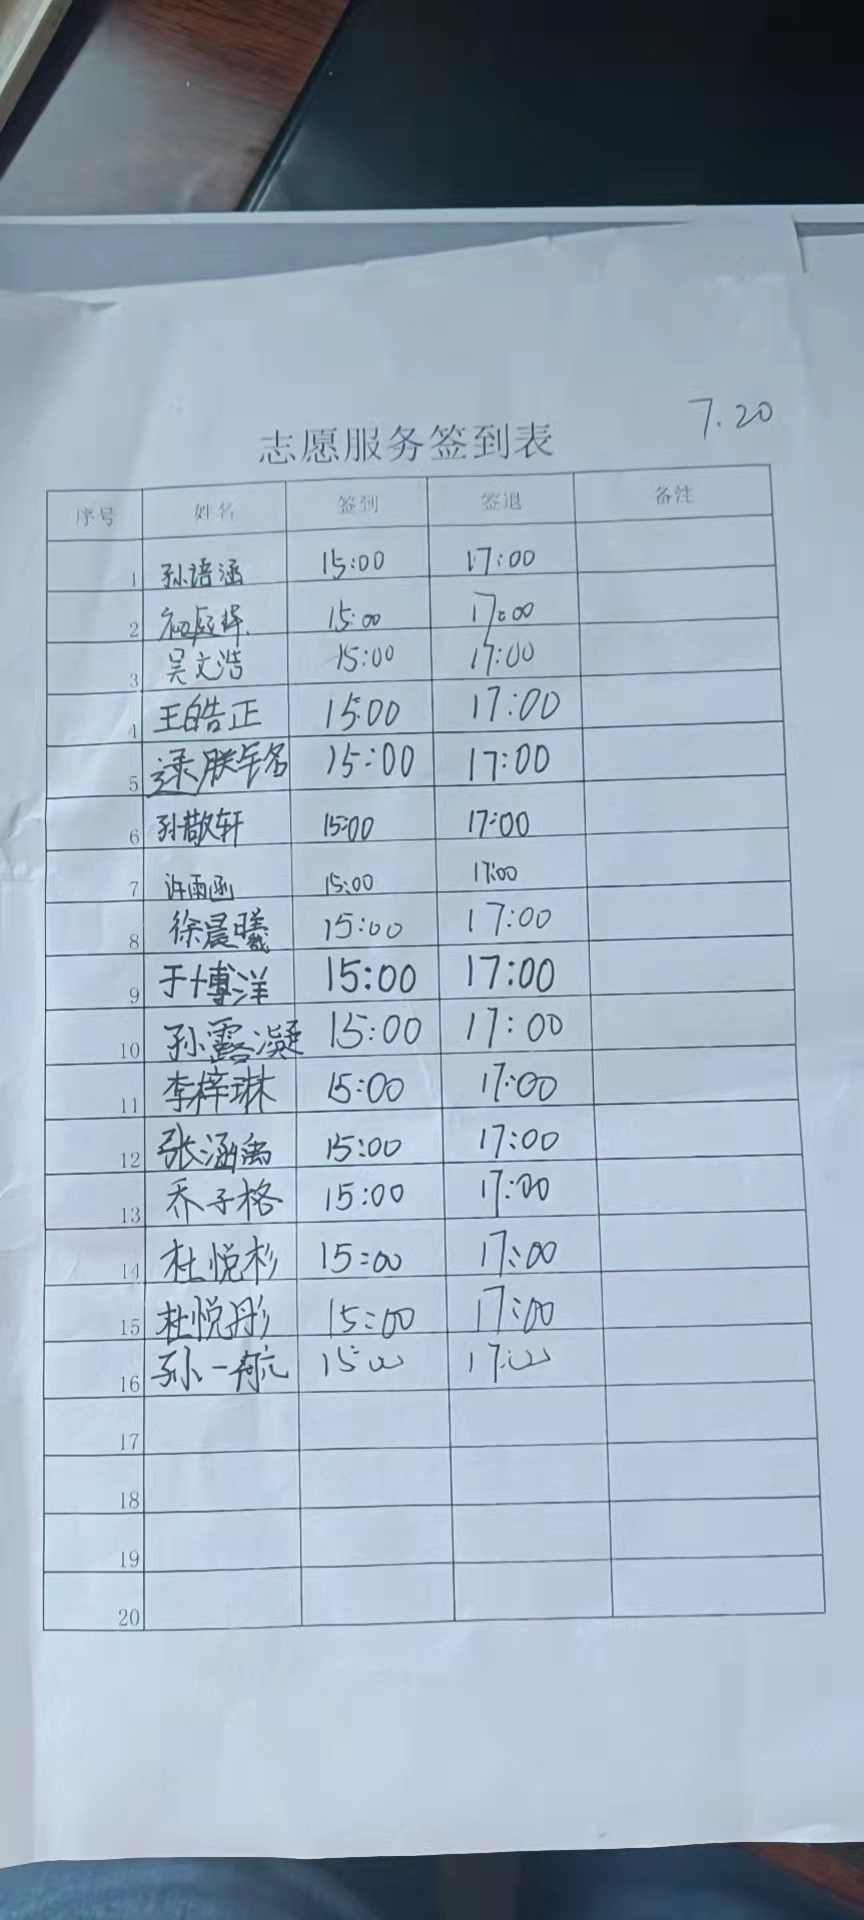 7.20
志愿服务签到表
序号 姓名 签到 签退 备注
1 孙语涵 15:00 17:00
2 15:00 17:00
3 吴文浩 15:00 17:00
4 王皓正 15:00 17:00
5 15:00 17:00
6 孙敬轩 15:00 17:00
7 许雨涵 15:00 17:00
8 徐晨曦 15:00 17:00
9 于博洋 15:00 17:00
10 孙露凝 15:00 17:00
11 李梓琳 15:00 17:00
12 张涵禹 15:00 17:00
13 乔子格 15:00 17:00
14 杜悦杉 15:00 17:00
15 杜悦彤 15:00 17:00
16 孙一航 15:00 17:00
17
18
19
20